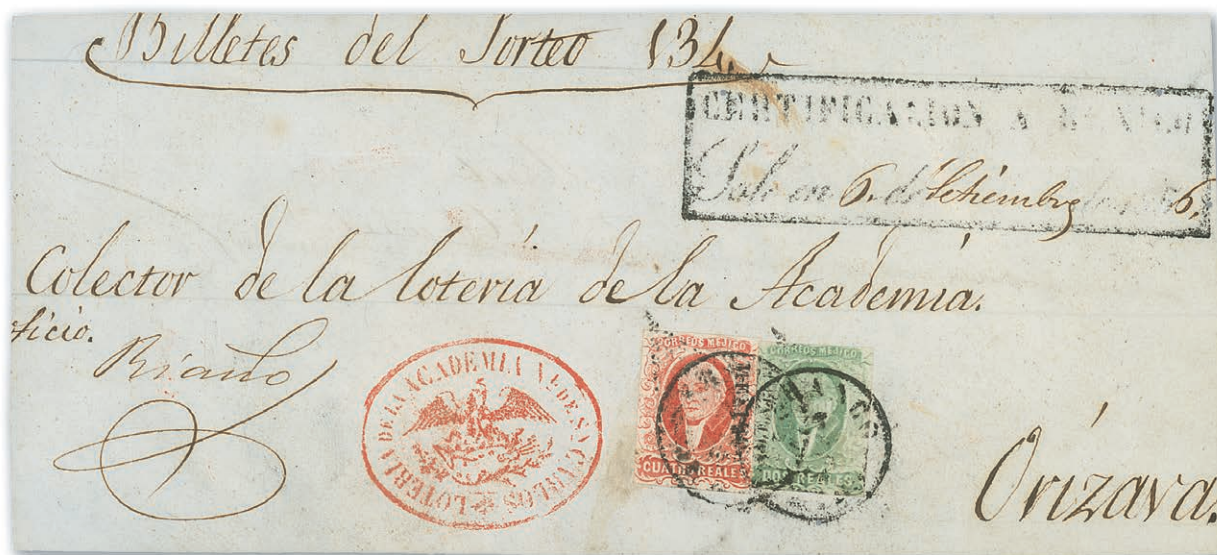 Billetes del Sorteo 134
CERTIFICACION A
Salio en 6. de Setiembre de 6.
Colector de la lotería de la Academia.
oficio.
Riaño
LOTERIA DE LA ACADEMIA NL. DE SN. CARLOS
CORREOS MEJICO
CUATRO REALES
CORREOS MEJICO
DOS REALES
Orizava.